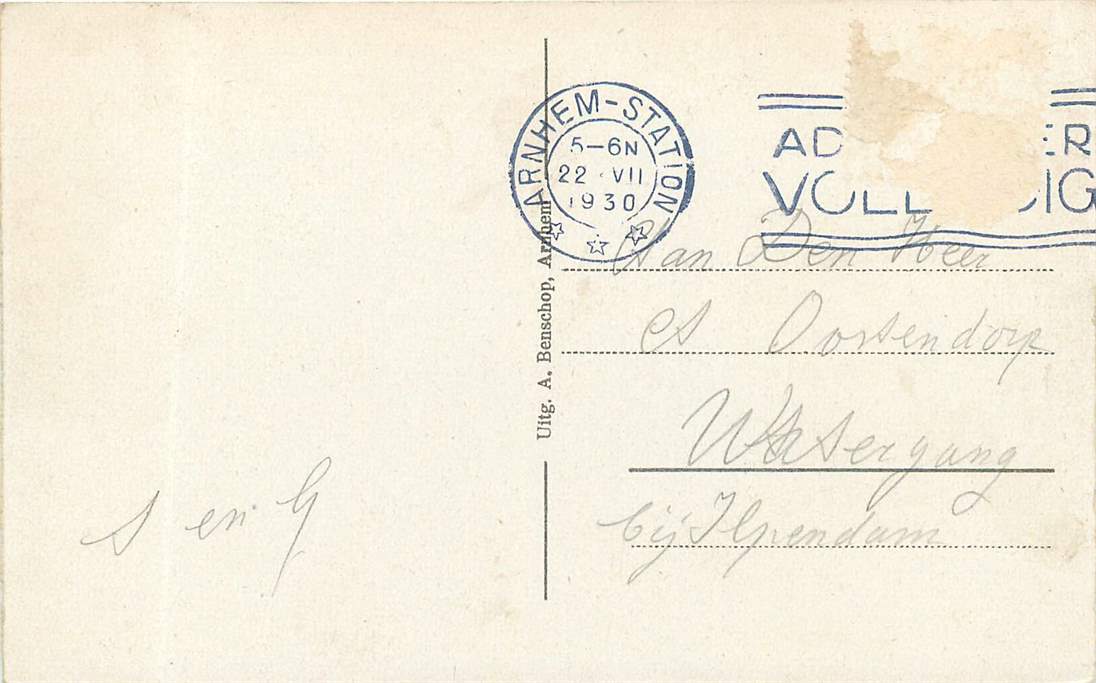 ARNHEM-STATION
5-6N
22 VII
1930
AD ER
VOLL DIG
Uitg. A. Benschop, Arnhem
Aan Den Heer
Oostendorp
Watergang
bij Ilpendam
S en G